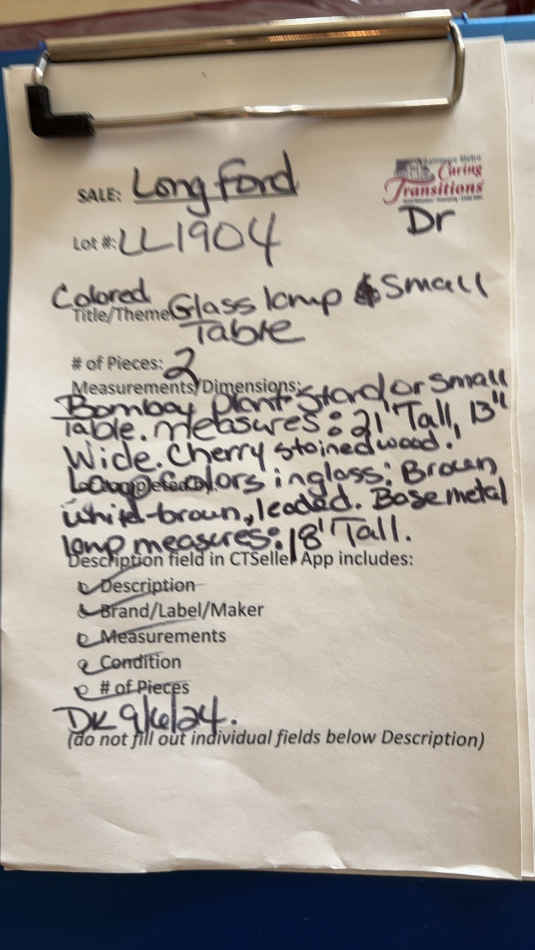 SALE: Longford
Caring
Transitions
Dr
Lot #: LL1904
Colored Glass lamp & Small
Title/Theme:
Table
# of Pieces: 2
Measurements/Dimensions:
Bombay Plant Stand or Small
Table. Measures: 21" Tall, 13"
Wide. Cherry stained wood.
Lamp colors in glass: Brown
white-brown, leaded. Base metal
lamp measures: 18" Tall.
Description field in CTSeller App includes:
Description
Brand/Label/Maker
Measurements
Condition
# of Pieces
DK 9/6/24.
(do not fill out individual fields below Description)